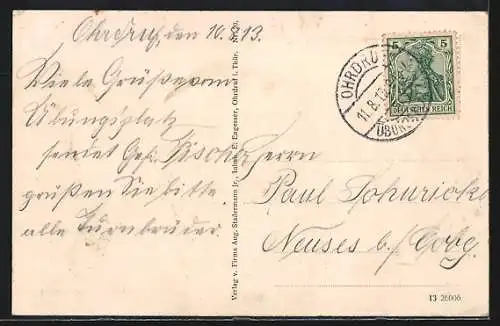 Ohrdruf, den 10. 8. 13.
Viele Grüße vom
Übungsplatz
sendet Gefr. Fischer
grüßen Sie bitte
alle Turnbrüder.
Herrn
Paul
Neuses b./ Cobg.
Verlag v. Firma Aug. Stadermann Jr., Inhab. E. Engesser, Ohrdruf i. Thür. Nr. 20.
OHRDRUF
11.8.13.
5 5
DEUTSCHES REICH
13 26606